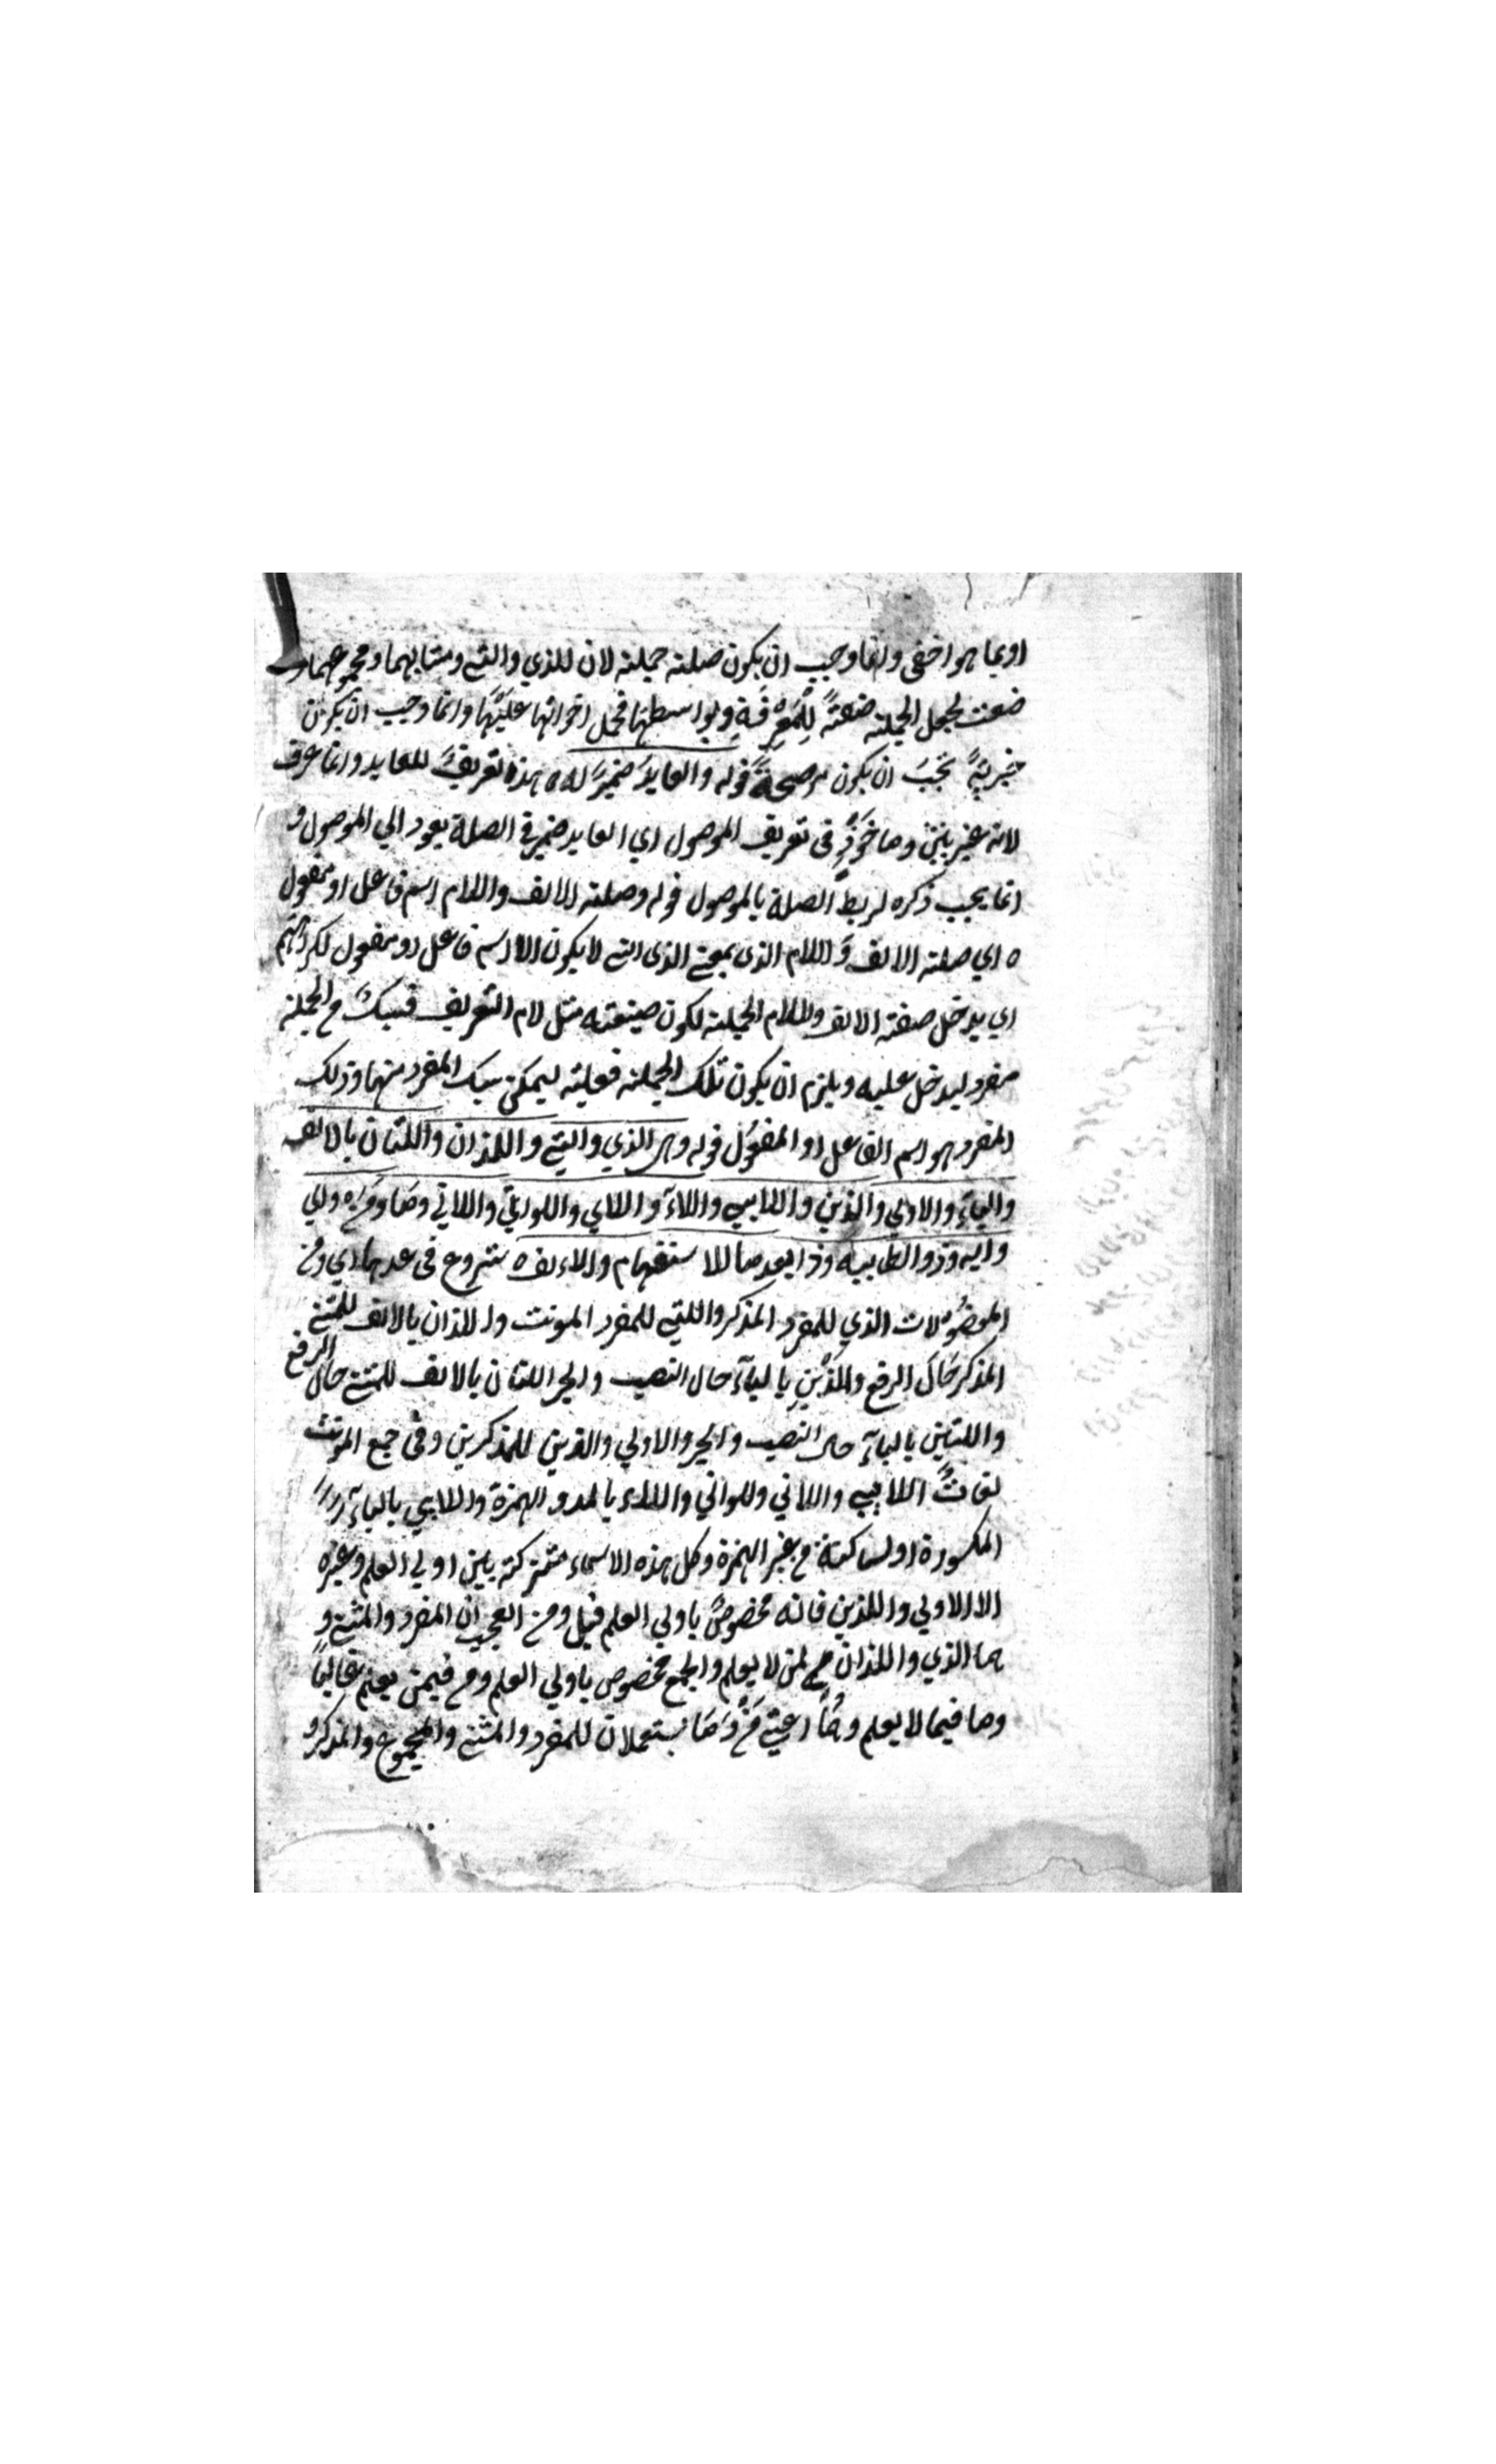 او بما هو اخفى وانما وجب ان يكون صلته جملته لان للذي والتي ومثنايهما ومجموعهما
ضعت لجعل الجملته ضعتةً لِلْمَعْرِفَةِ وبواسطتها فحمل اخواتها عَلَيْهَا وانما وجب ان يكون
خبريةً يَجب ان يكون موصحةً قوله والعايدُ ضميرٌ له ه هذه تعريفٌ للعايد وانما عرف
لانه غير بيّنٍ وماخوذٍ فى تعريف الموصول اي العايد ضمير فى الصلة يعود الي الموصول و
انما يجب ذكره لربط الصلة بالموصول قوله وصلته الالف واللام اسم فاعل او مفعول
ه اي صلته الالف وَاللام الذى بمعنى الذى التى لا يكون الا اسم فاعل او مفعول لكراهتهم
اي يدخل صفته الالف واللام الجملته لكون صيغته مثل لام التعريف فسبكَ مع الجملته
مفرد ليدخل عليه ويلزم ان يكون تلك الجملته فعليته ليمكن سبك المفرد منهما وذلك
المفرد هو اسم الفاعل او المفعُول قوله وهى الذي والتي واللذان واللتان بالالف
والياءِ والاولي والذين واللايي واللاآ واللاي واللواتي واللاتي ومَا ومَن ه واي
وايه وذو الطاييه وذا بعد ما للاستفهام والالف ه شروع فى عدها اي ومن
الموصُولات الذي للمفرد المذكر واللتي للمفرد المونث واللذان بالالف للمثنى
المذكر حَالَ الرفع والَّذَيْنِ بالياءِ حال النصب والجر اللتان بالالف للمثنى حال الرفع
واللتين بالياءِ حال النصب والجر والاولي والذين للمذكرين وفى جمع المونث
لغاتٌ اللايي واللاتي وللواتي واللاء بالمد والهمزة واللايي بالياءِ
المكسورة او لساكنة من غير الهمزة وكل هذه الاسماء مشتركته بين اولي العلم وغيره
الا الاولي واللذين فانه مخصوصٌ باولي العلم قيل ومن العجب ان المفرد والمثنى و
هما الذي واللذان لمن لا يعلم والجمع مخصوص باولي العلم ومن فيمن يعلم غالباً
وما فيما لا يعلم وهُما اعني مَنْ وَمَا يستعملان للمفرد والمثنى والمجموع والمذكر و